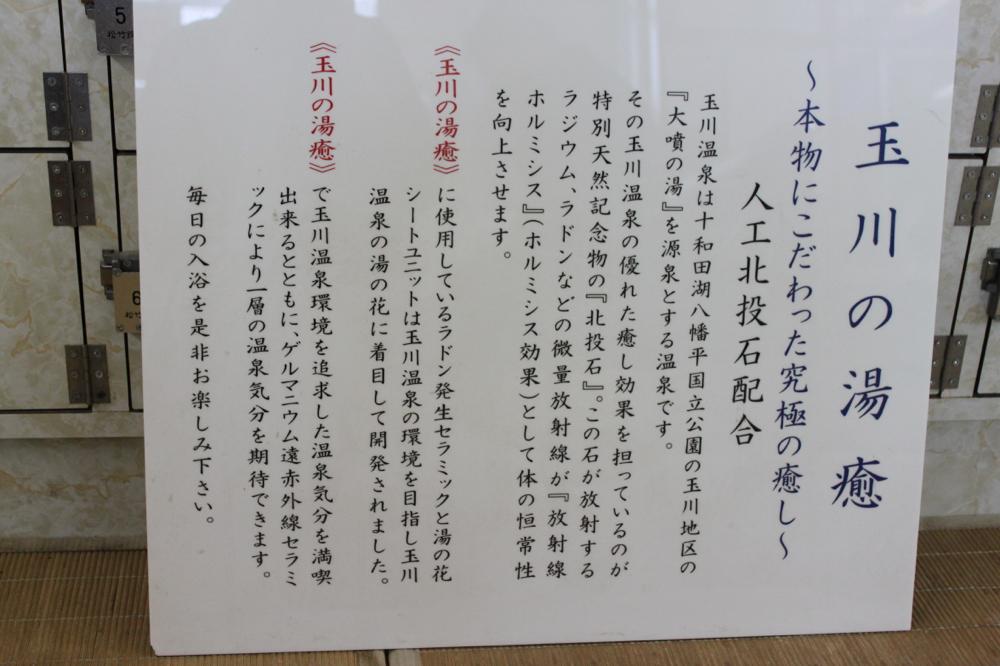 玉川の湯癒
～本物にこだわった究極の癒し～
人工北投石配合
玉川温泉は十和田湖八幡平国立公園の玉川地区の
『大噴の湯』を源泉とする温泉です。
その玉川温泉の優れた癒し効果を担っているのが
特別天然記念物の『北投石』。この石が放射する
ラジウム、ラドンなどの微量放射線が『放射線
ホルミシス』(ホルミシス効果)として体の恒常性
を向上させます。
《玉川の湯癒》に使用しているラドン発生セラミックと湯の花
シートユニットは玉川温泉の環境を目指し玉川
温泉の湯の花に着目して開発されました。
《玉川の湯癒》で玉川温泉環境を追求した温泉気分を満喫
出来るとともに、ゲルマニウム遠赤外線セラミ
ックにより一層の温泉気分を期待できます。
毎日の入浴を是非お楽しみ下さい。
5
松竹錠
6
松竹錠